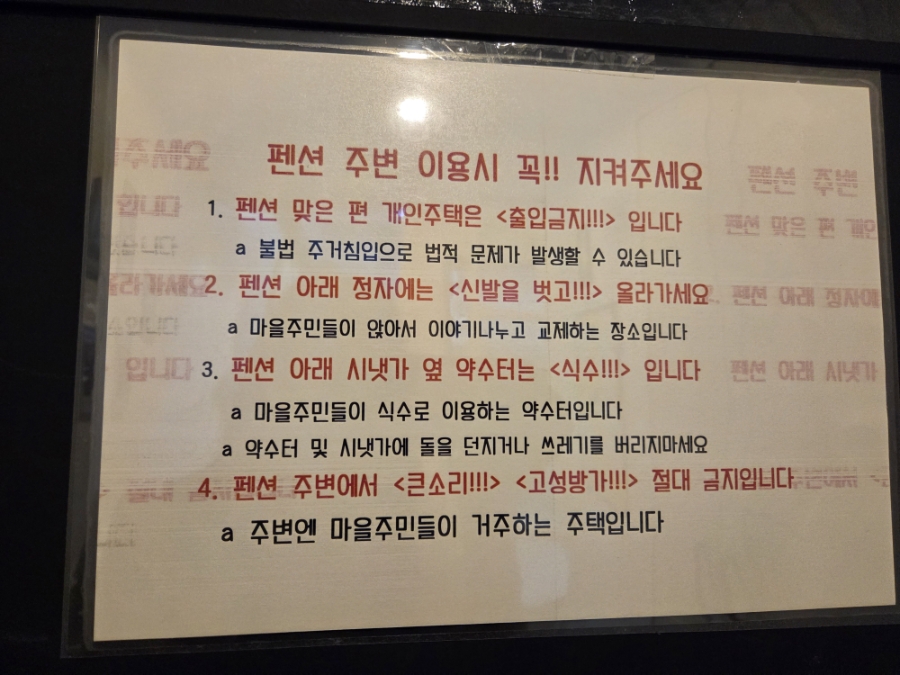 펜션 주변 이용시 꼭!! 지켜주세요
1. 펜션 맞은 편 개인주택은 <출입금지!!!> 입니다
a 불법 주거침입으로 법적 문제가 발생할 수 있습니다
2. 펜션 아래 정자에는 <신발을 벗고!!!> 올라가세요
a 마을주민들이 앉아서 이야기나누고 교제하는 장소입니다
3. 펜션 아래 시냇가 옆 약수터는 <식수!!!> 입니다
a 마을주민들이 식수로 이용하는 약수터입니다
a 약수터 및 시냇가에 돌을 던지거나 쓰레기를 버리지마세요
4. 펜션 주변에서 <큰소리!!!> <고성방가!!!> 절대 금지입니다
a 주변엔 마을주민들이 거주하는 주택입니다